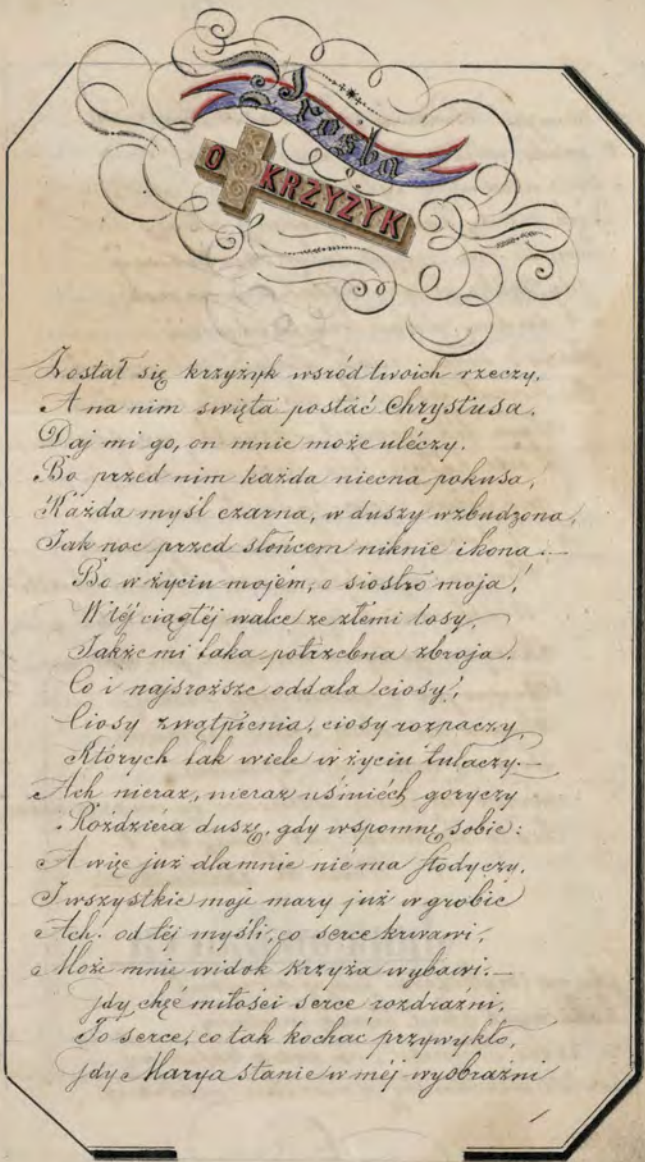 Prośba
O KRZYŻYK
Został się krzyżyk wsród twoich rzeczy,
A na nim swięta postać Chrystusa.
Daj mi go, on mnie może uléczy.
Bo przed nim każda niecna pokusa,
Każda myśl czarna, w duszy wzbudzona,
Jak noc przed słońcem niknie i kona.—
Bo w życiu mojém, o siostro moja,
W téj ciągłéj walce ze złemi losy,
Także mi taka potrzebna zbroja.
Co i najsroższe oddala ciosy,
Ciosy zwątpienia, ciosy rozpaczy,
Których tak wiele w życiu tułaczy.—
Ach nieraz, nieraz uśmiéch goryczy
Rozdziera duszę, gdy wspomnę sobie:
A więc już dla mnie niéma słodyczy,
I wszystkie moje mary już w grobie
Ach! od téj myśli, co serce krwawi,
Może mnie widok Krzyża wybawi.—
Gdy chęć miłości serce rozdraźni,
To serce, co tak kochać przywykło,
Gdy Marya stanie w méj wyobraźni